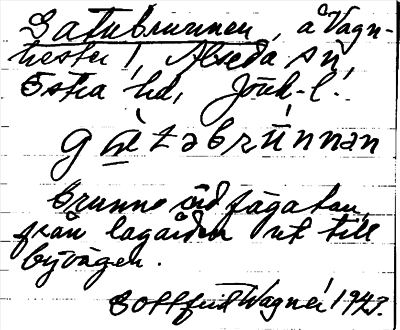 Gatubrunnen, å Vagn-
hester 1, Alseda sn,
Östra hd, Jönk. l.
gàtabrúnnən
Brunn vid fägatan,
från lagården ut till
byvägen.
Gottfrid Wagnér 1943.